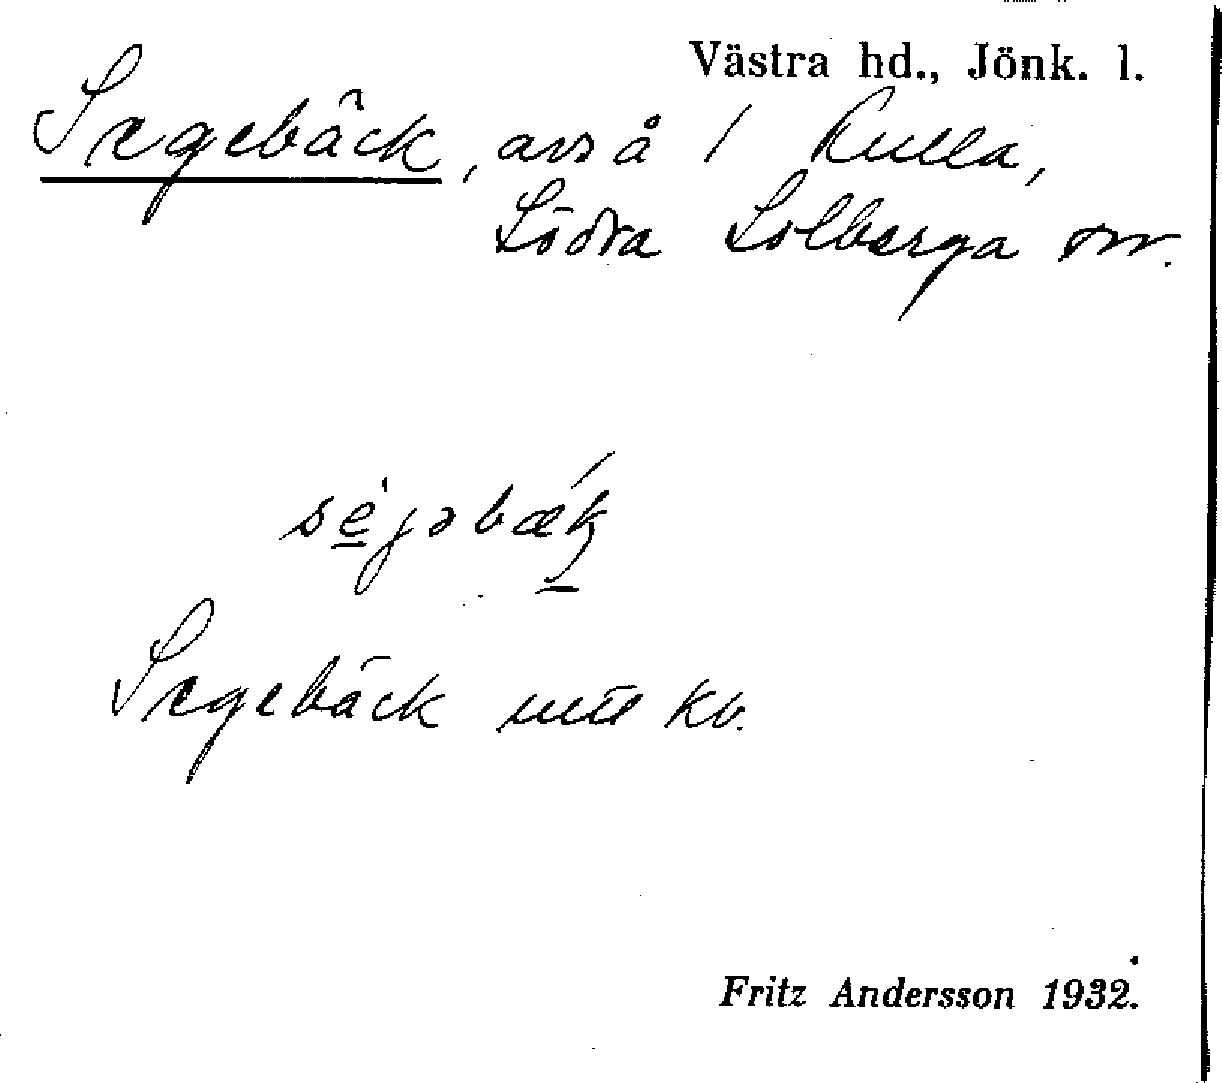 Västra hd., Jönk. l.
Segebäck, avs å 1 Kulla,
Södra Solberga sn.
séjəbæk
Segebäck utt kb.
Fritz Andersson 1932.